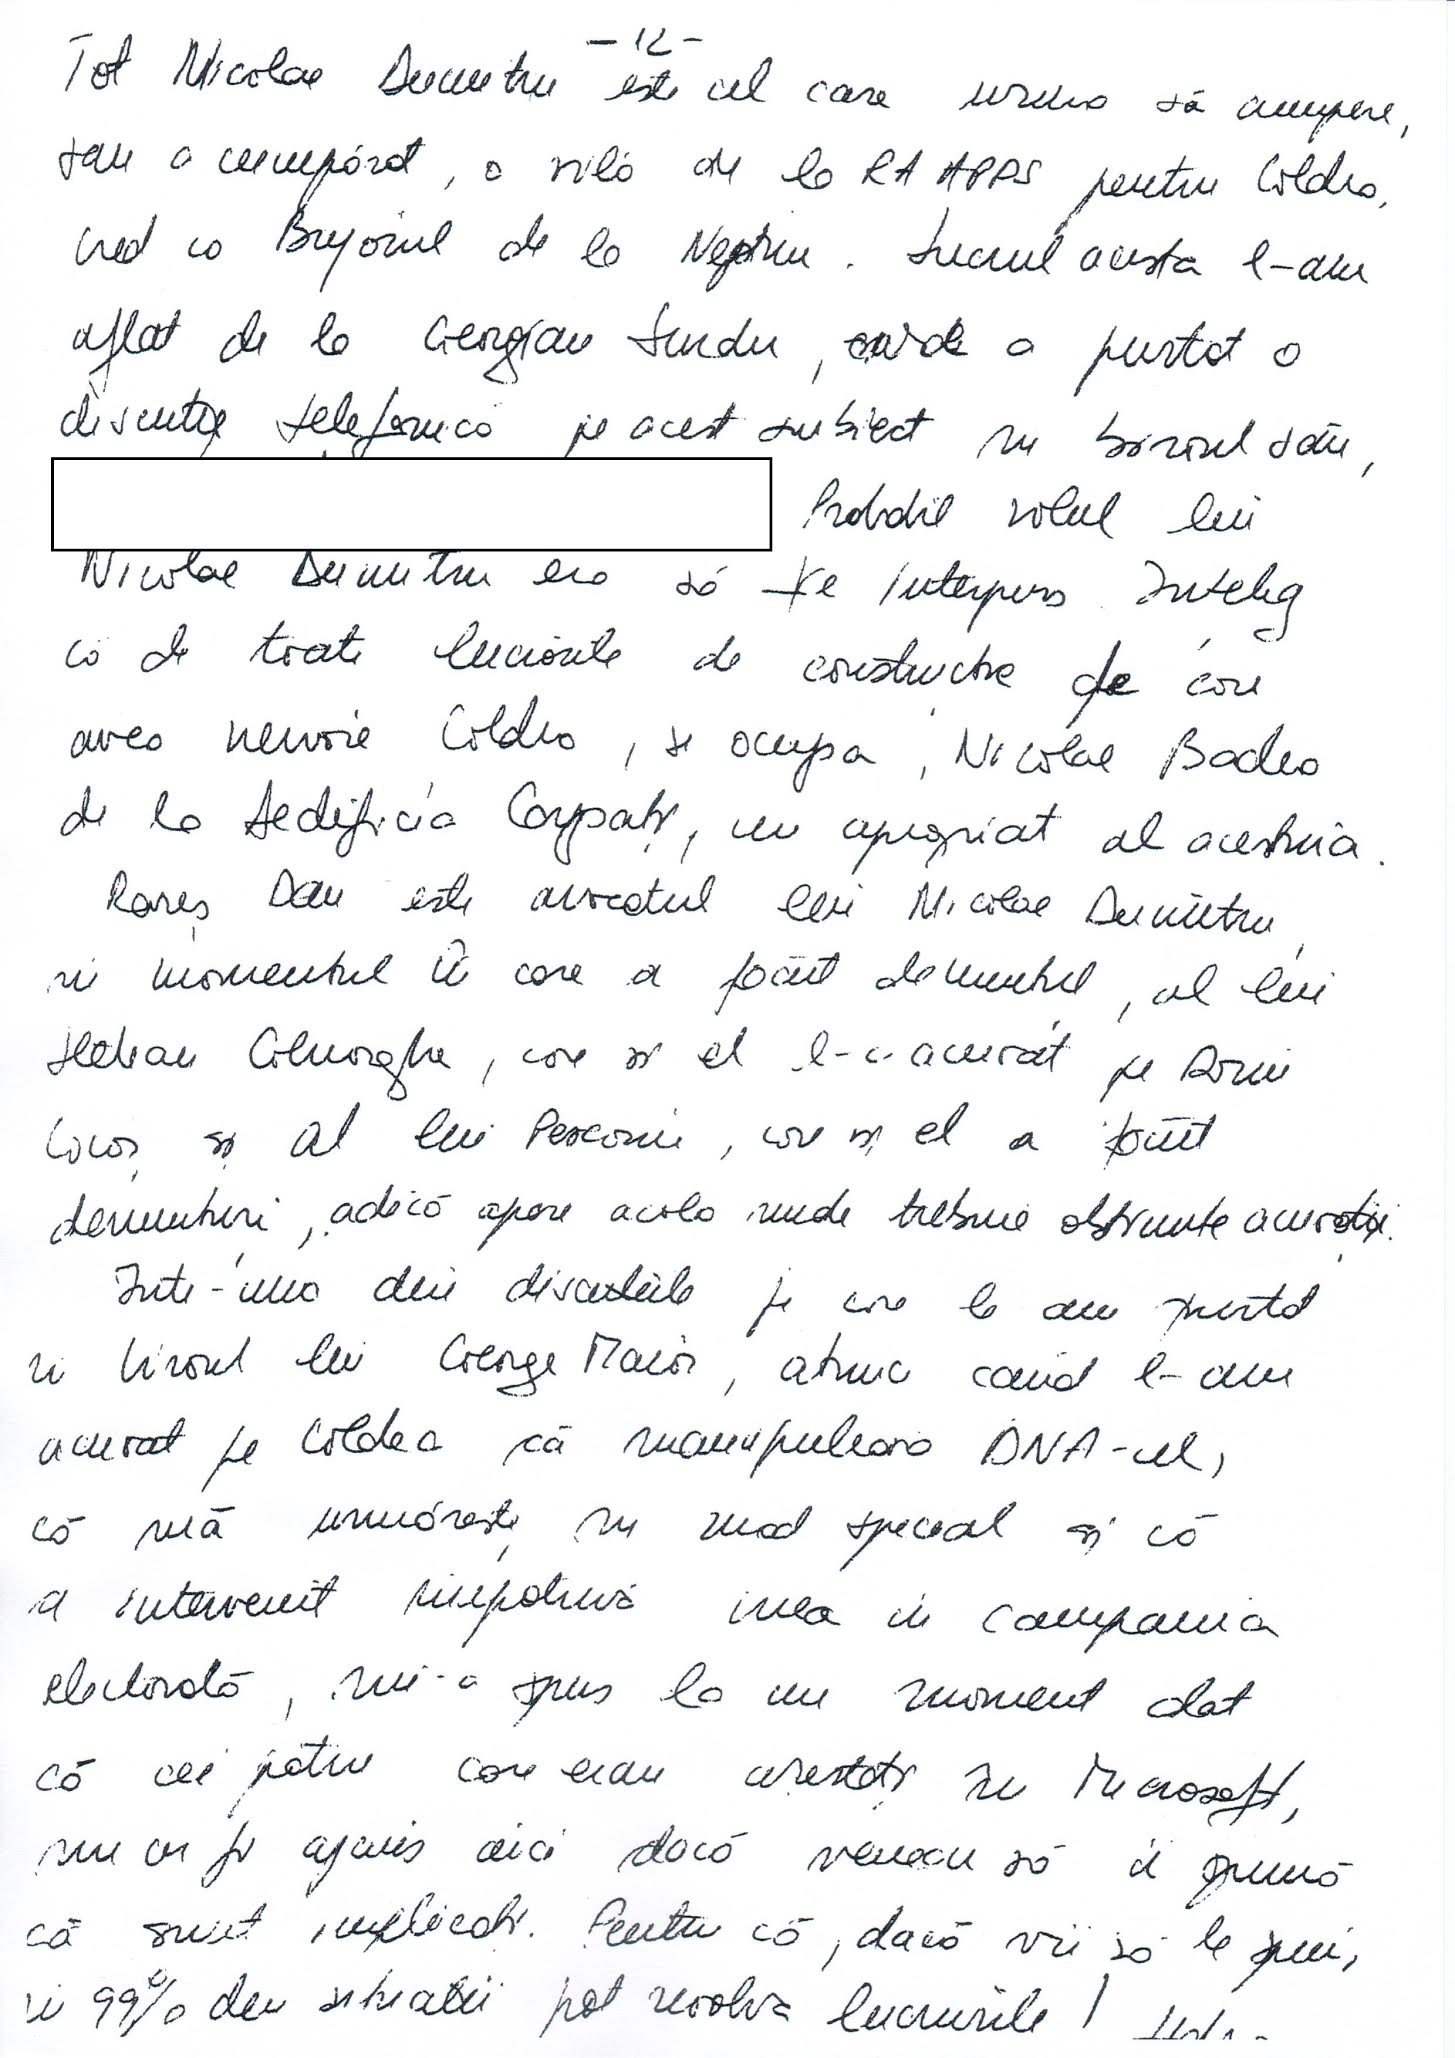 -12-
Tot Nicolae Dumitru este cel care urma să cumpere,
sau a cumpărat, o vilă de la RA APPS pentru Coldea,
cred ca Brejoiul de la Neptun. Lucrul acesta l-am
aflat de la Georgian Surdu, care a purtat o
discuție telefonică pe acest subiect în biroul său,
Probabil rolul lui
Nicolae Dumitru era să fie interpus. Înțeleg
că de toate lucrările de construcție de care
avea nevoie Coldea, se ocupa, Nicolae Badea
de la Aedificia Carpați, un apropiat al acestuia.
Rareș Dan este avocatul lui Nicolae Dumitru,
în momentul în care a făcut denunțul, al lui
Ștefan Gheorghe, care și el l-a acuzat pe Dorin
Cocoș și al lui Pescariu, care și el a făcut
denunțuri, adică apare acolo unde trebuie obținute acuzații.
Într-una din discuțiile pe care le-am purtat
în biroul lui George Maior, atunci când l-am
acuzat pe Coldea că manipulează DNA-ul,
că mă urmărește în mod special și că
a intervenit împotriva mea în campania
electorală, mi-a spus la un moment dat
că cei patru care erau arestați în Microsoft,
nu ar fi ajuns aici dacă veneau să îi spună
că sunt implicați. Pentru că, dacă vii să le spui,
în 99% din situații pot rezolva lucrurile!